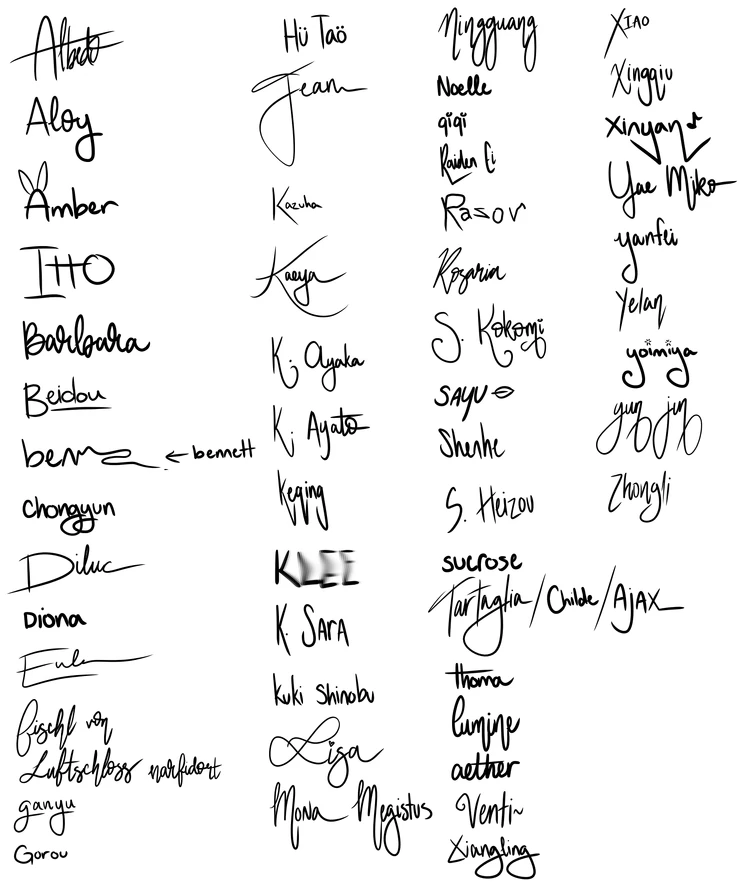 Albedo
Aloy
Amber
ITTO
Barbara
Beidou
benn ← bennett
chongyun
Diluc
Diona
Eula
fischl von
Luftschloss narfidort
ganyu
Gorou
Hü Taö
Jean
Kazuha
Kaeya
K. Ayaka
K. Ayato
Keqing
KLEE
K. SARA
Kuki Shinobu
Lisa
Mona Megistus
Ningguang
Noelle
qiqi
Raiden Ei
Razor
Rosaria
S. Kokomi
SAYU
Shenhe
S. Heizou
sucrose
Tartaglia / Childe / AJAX
thoma
lumine
aether
Venti~
Xiangling
XIAO
Xingqiu
Xinyan♪
Yae Miko
yanfei
Yelan
yoimiya
yun jin
Zhongli